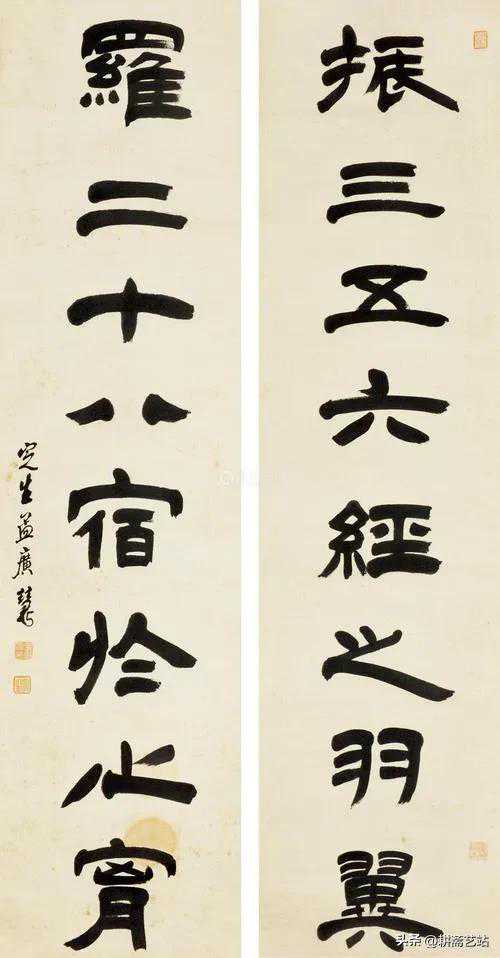 振三五六經之羽翼
羅二十八宿於心胷
定生孟廣慧
头条 @耕斋艺站